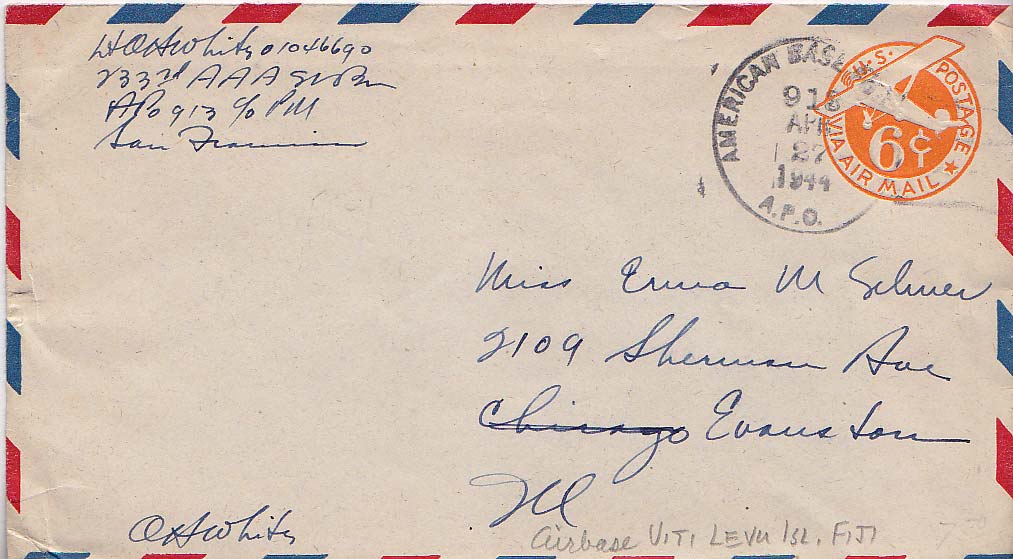 Lt O H White 01046690
733rd AAA Gun Bn
APO 913 c/o PM
San Francisco
AMERICAN BASE
913
APR
27
1944
A.P.O.
U.S. POSTAGE
6¢
VIA AIR MAIL
Miss Erma M
2109 Sherman Ave
Chicago Evanston
Ill
O H White
airbase VITI LEVU ISL. FIJI